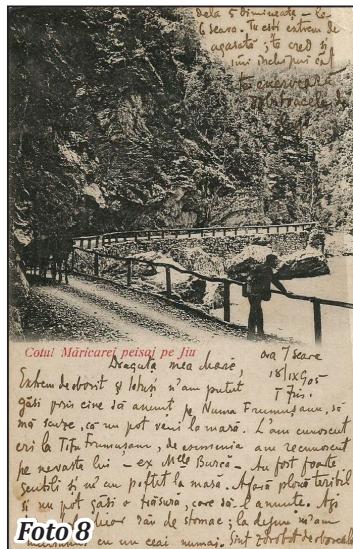 dela 5 dimineață – la
6 seara. Tu ești extrem de
agasată; te cred și
îmi închipui cât
te enervează
Cotul Măricarei peisaj pe Jiu
Draguța mea
ora 7 seara
18/IX 905
T Jiu.
Extrem de obosit și totuși n'am putut
găsi prin cine să anunț pe Numa Frumușanu, să
mă scuze, că nu pot veni la masă. L'am cunoscut
eri la Titu Frumușanu, de asemenia am recunoscut
pe nevasta lui – ex Melle Au fost foarte
gentili și m'au poftit la masa. Afară plouă teribil
și nu pot găsi o trăsură, care să-l anunțe.
rău de stomac; la dejun m'am
cu un ceai numai. Sunt zdrobit de oboseală
Foto 8